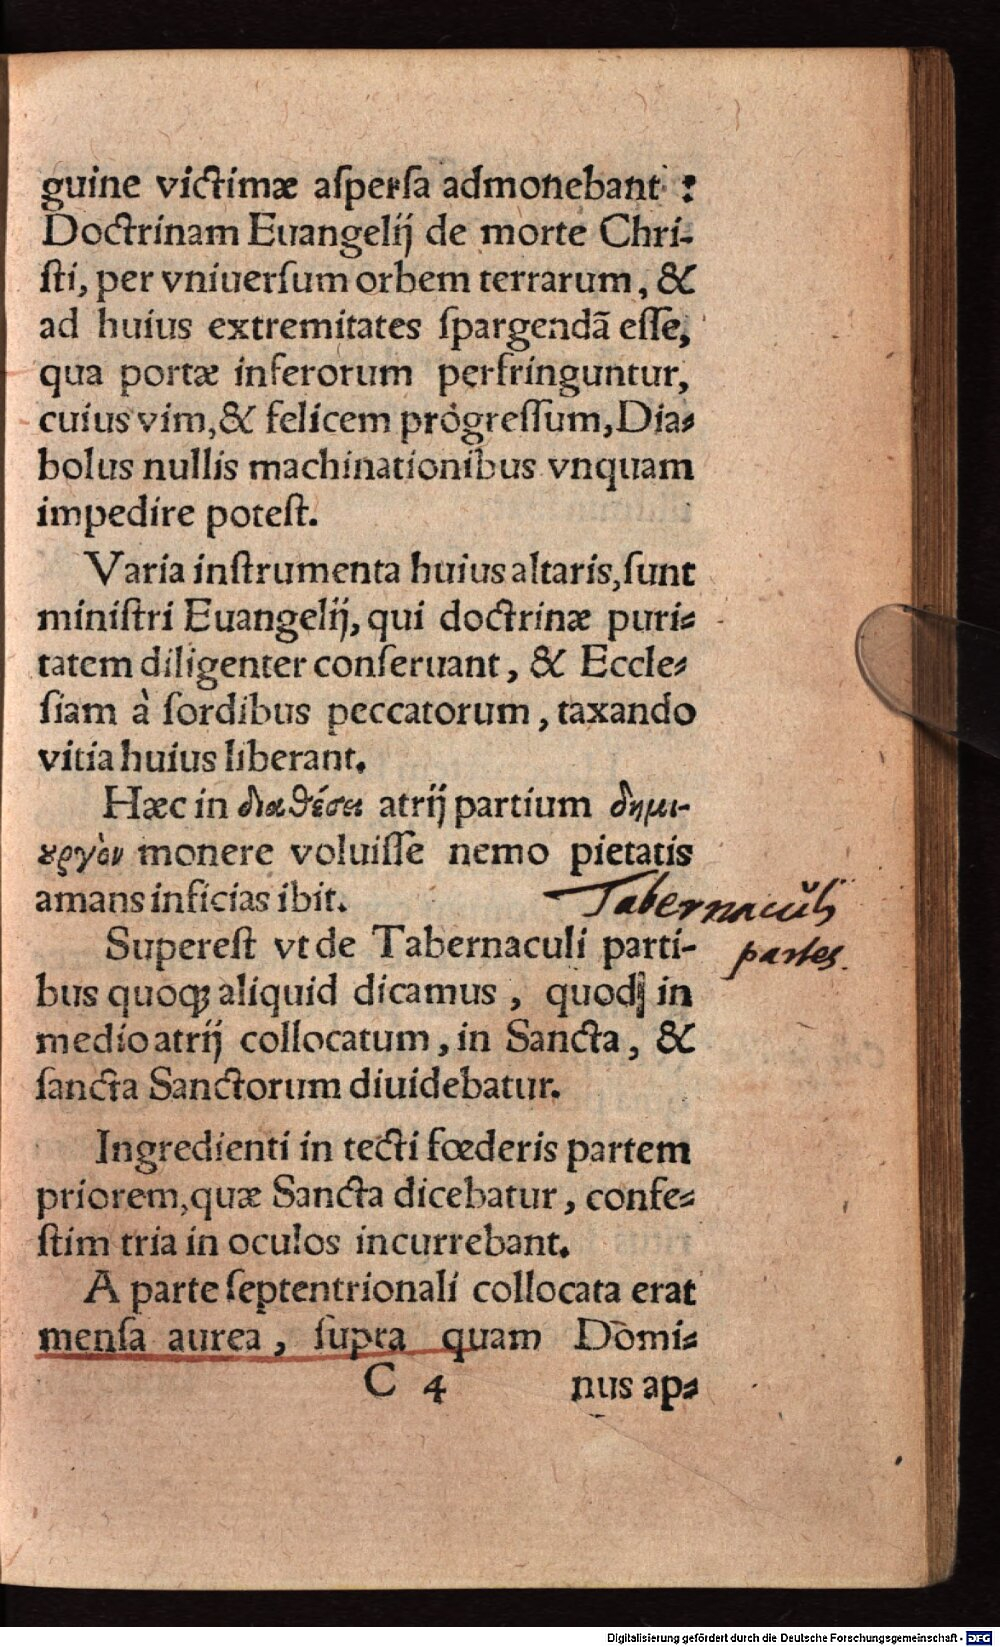 guine victimæ aſperſa admonebant ?
Doctrinam Euangelij de morte Chri-
ſti, per vniuerſum orbem terrarum, &
ad huius extremitates ſpargendã eſſe,
qua portæ inferorum perfringuntur,
cuius vim, & felicem prógreſſum, Dia-
bolus nullis machinationibus vnquam
impedire poteſt.
Varia inſtrumenta huius altaris, ſunt
miniſtri Euangelij, qui doctrinæ puri-
tatem diligenter conſeruant, & Eccle-
ſiam à ſordibus peccatorum, taxando
vitia huius liberant.
Hæc in διαθέσει atrij partium δημι-
ȣργὸν monere voluiſſe nemo pietatis
amans inficias ibit.
Tabernaculi
partes.
Supereſt vt de Tabernaculi parti-
bus quoq; aliquid dicamus, quod in
medio atrij collocatum, in Sancta, &
ſancta Sanctorum diuidebatur.
Ingredienti in tecti fœderis partem
priorem, quæ Sancta dicebatur, confe-
ſtim tria in oculos incurrebant.
A parte ſeptentrionali collocata erat
menſa aurea, ſupra quam Domi-
C 4 nus ap-
Digitalisierung gefördert durch die Deutsche Forschungsgemeinschaft - DFG